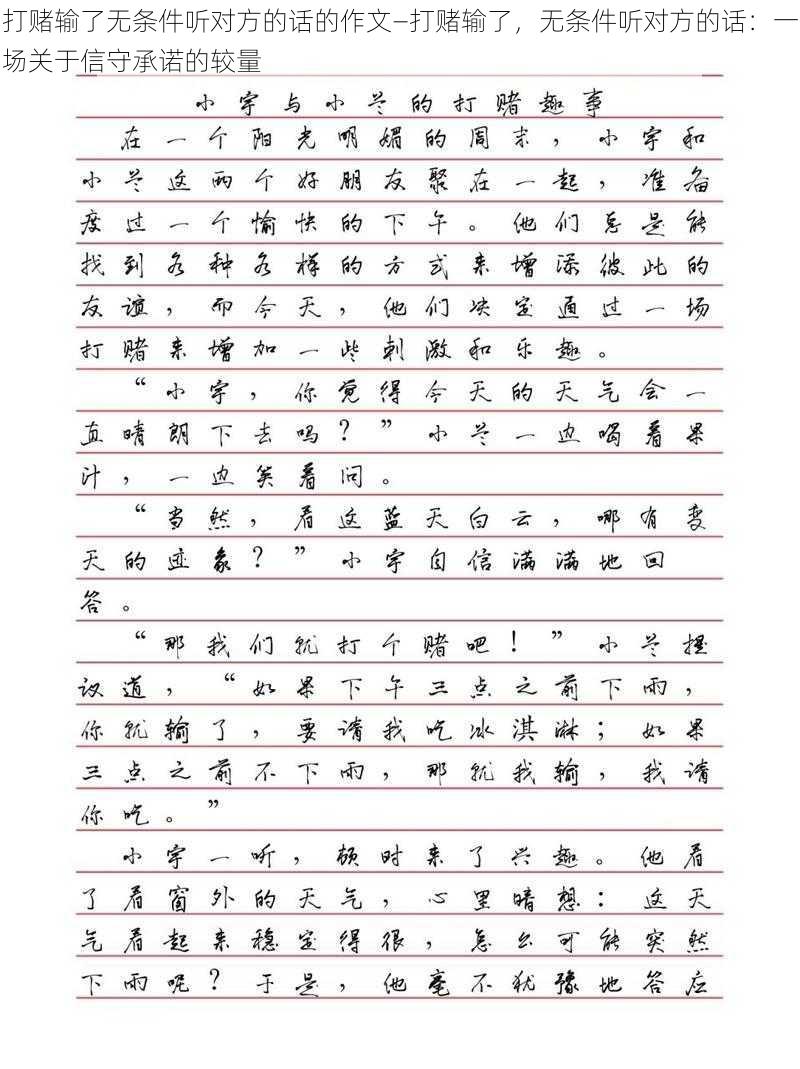 打赌输了无条件听对方的话的作文—打赌输了，无条件听对方的话：一
场关于信守承诺的较量
小宇与小兰的打赌趣事
在一个阳光明媚的周末，小宇和
小兰这两个好朋友聚在一起，准备
度过一个愉快的下午。他们总是能
找到各种各样的方式来增添彼此的
友谊，而今天，他们决定通过一场
打赌来增加一些刺激和乐趣。
“小宇，你觉得今天的天气会一
直晴朗下去吗？”小兰一边喝着果
汁，一边笑着问。
“当然，看这蓝天白云，哪有变
天的迹象？”小宇自信满满地回
答。
“那我们就打个赌吧！”小兰提
议道，“如果下午三点之前下雨，
你就输了，要请我吃冰淇淋；如果
三点之前不下雨，那就我输，我请
你吃。”
小宇一听，顿时来了兴趣。他看
了看窗外的天气，心里暗想：这天
气看起来稳定得很，怎么可能突然
下雨呢？于是，他毫不犹豫地答应